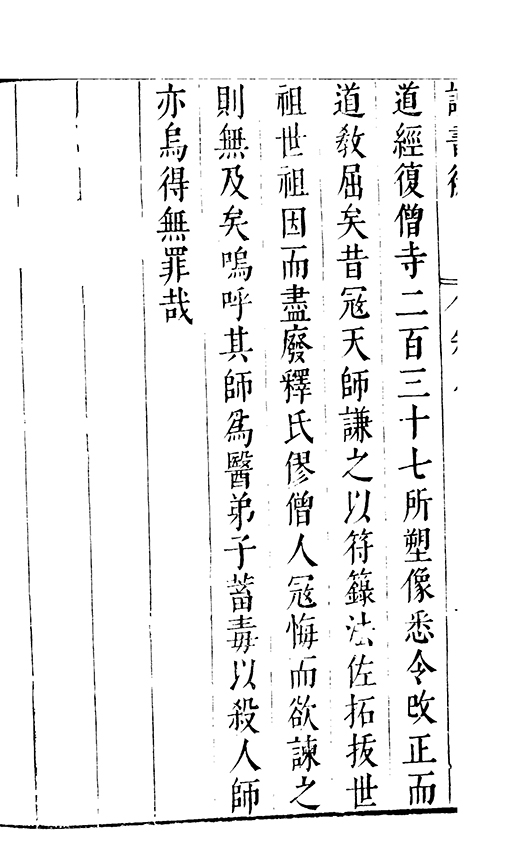 道經復僧寺二百三十七所塑像悉令改正而
道敎屈矣昔冦天師謙之以符籙法佐拓抜世
祖世祖因而盡廢釋氏僇僧人冦悔而欲諫之
則無及矣嗚呼其師爲醫弟子蓄毒以殺人師
亦烏得無罪哉